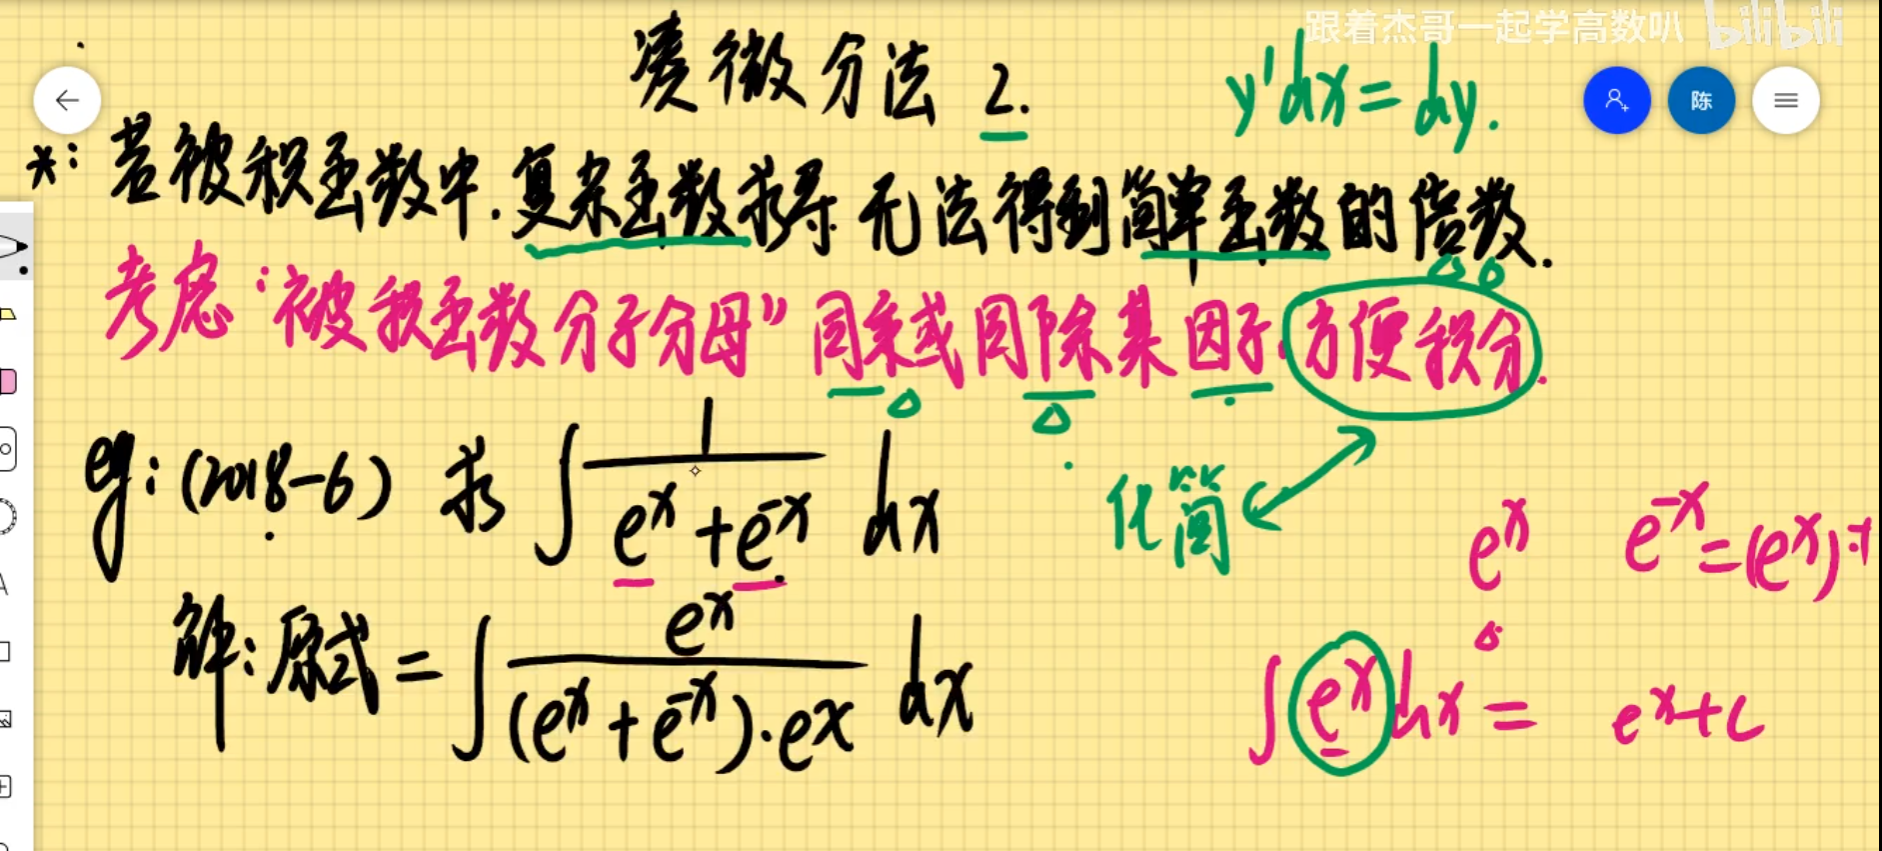 跟着杰哥一起学高数叭 bilibili
凑微分法 2.
y'dx=dy.
陈
*: 若被积函数中.复杂函数求导无法得到简单函数的倍数.
考虑:"被积函数分子分母"同乘或同除某因子.方便积分.
eg: (2018-6) 求 ∫ 1/(eˣ+e⁻ˣ) dx
化简
eˣ e⁻ˣ=(eˣ)⁻¹
解:原式=∫ eˣ/((eˣ+e⁻ˣ)·eˣ) dx
∫eˣdx= eˣ+c